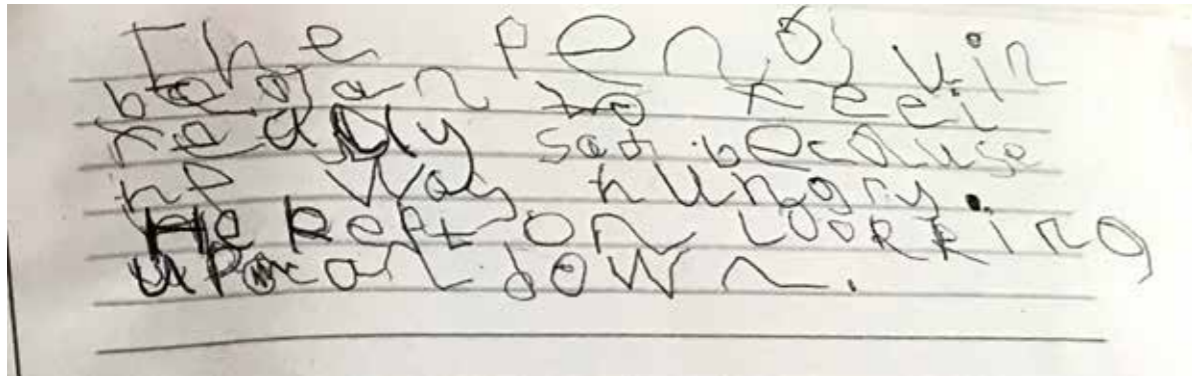 The penguin
began to feel
really sad because
he was hungry.
He kept on lookking
up an down.